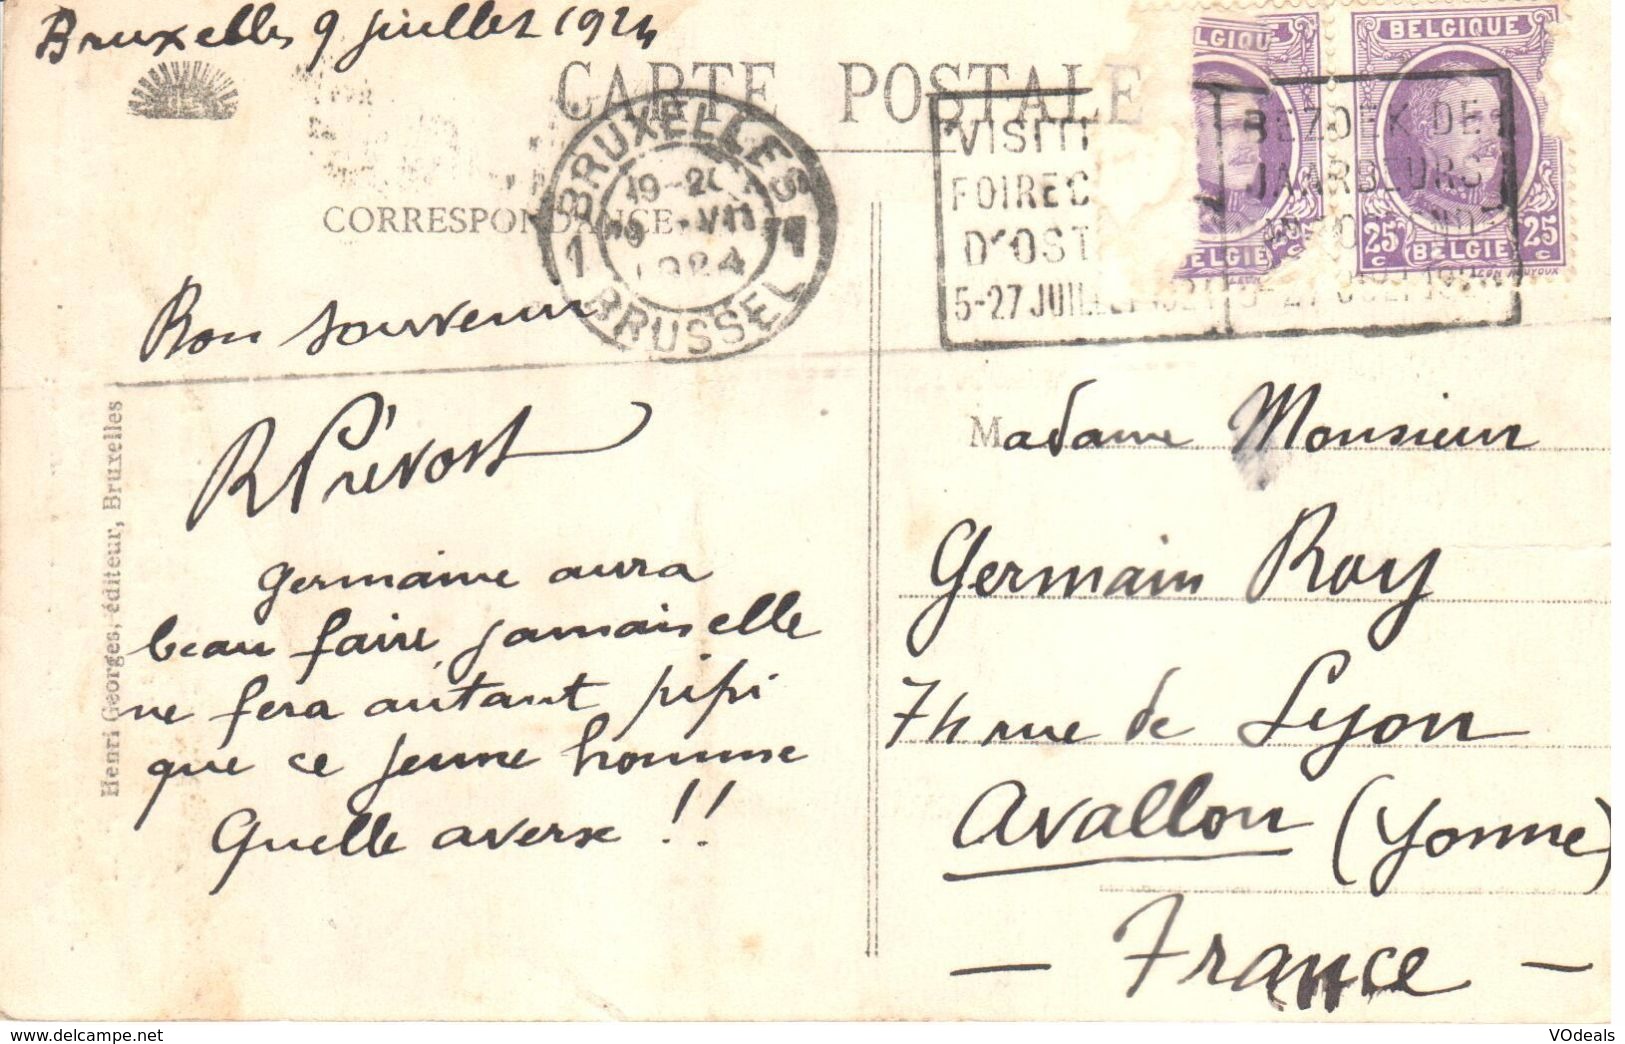 Bruxelles 9 juillet 1924
CARTE POSTALE
CORRESPONDANCE
BRUXELLES
1 1
19-20
9 -VII
1924
BRUSSEL
VISITE
FOIRE C
D'OST
5-27 JUILLET 1924
BEZOEK DE
JAARBEURS
5-27 JULI 192
LGIQU
BELGIE
BELGIQUE
25c 25c
BELGIE
Bon souvenir
R Prévost
Germaine aura
beau faire, jamais elle
ne fera autant pipi
que ce jeune homme
Quelle averse !!
Henri Georges, éditeur, Bruxelles
Madame Monsieur
Germain Roy
74 rue de Lyon
Avallon (Yonne)
- France -
http://www.delcampe.net
VOdeals